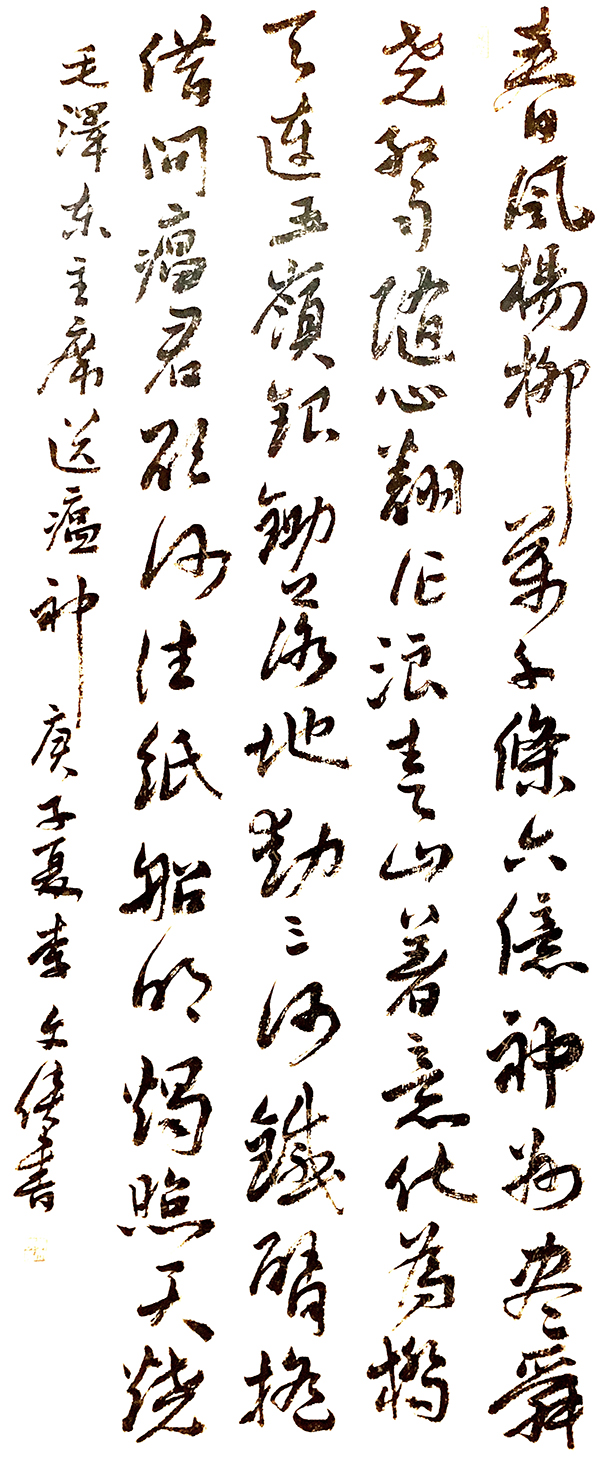 春風楊柳萬千條六億神州尽舜
尧紅雨隨心翻作浪青山着意化為橋
天連五嶺銀鋤落地動三河鐵臂搖
借問瘟君欲何往紙船明燭照天烧
毛澤东主席送瘟神 庚子夏李文書